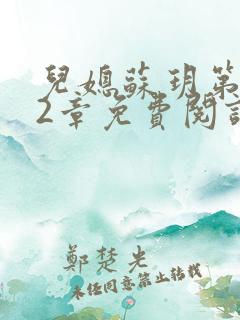 兒媳蘇玥第
2章免費閱讀
鄭楚光
未經同意禁止轉載